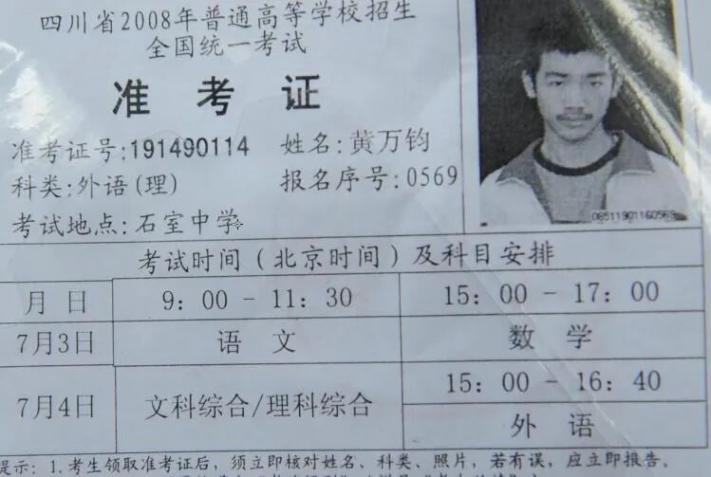 四川省2008年普通高等学校招生
全国统一考试
准考证
准考证号:191490114 姓名:黄万钧
科类:外语(理) 报名序号:0569
考试地点:石室中学
考试时间(北京时间)及科目安排
月日 9:00-11:30 15:00-17:00
7月3日 语文 数学
15:00-16:40
7月4日 文科综合/理科综合
外语
提示:1.考生领取准考证后,须立即核对姓名、科类、照片,若有误,应立即报告。